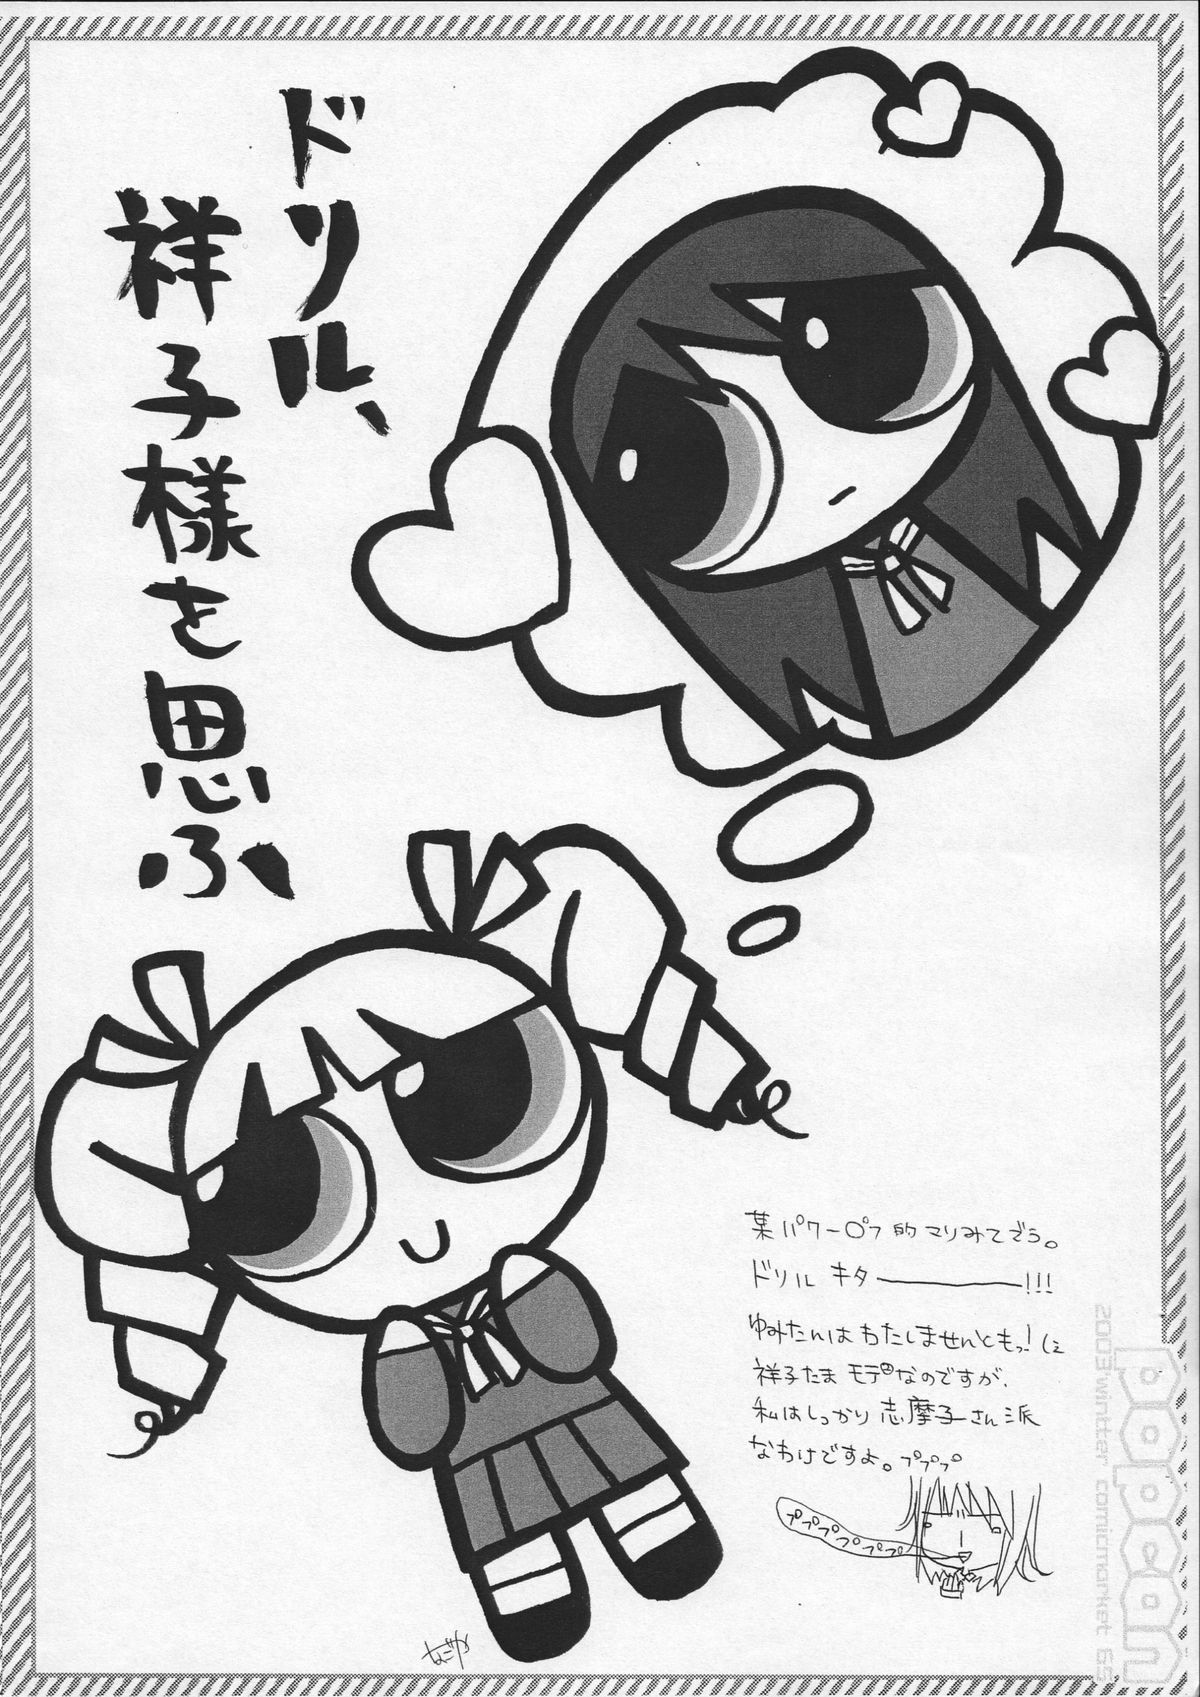 ドリル、
祥子様を思ふ
某パワーパフ的マリみてどう。
ドリル キター!!!
ゆみたんはわたしませんともっ!
祥子たま モテなのですが、
私はしっかり 志摩子さん派
なわけですよ。ププププ
プププププププ
なごや
popcan
2003 winter comicmarket 65